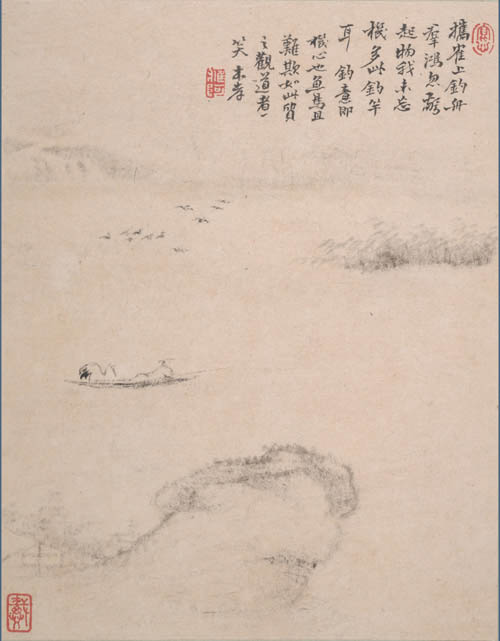 攜寉上釣舟
羣鴻忽驚
起物我未忘
機多此釣竿
耳 釣意即
機心也魚鳥且
難欺如此質
之觀道者一
笑 本孝